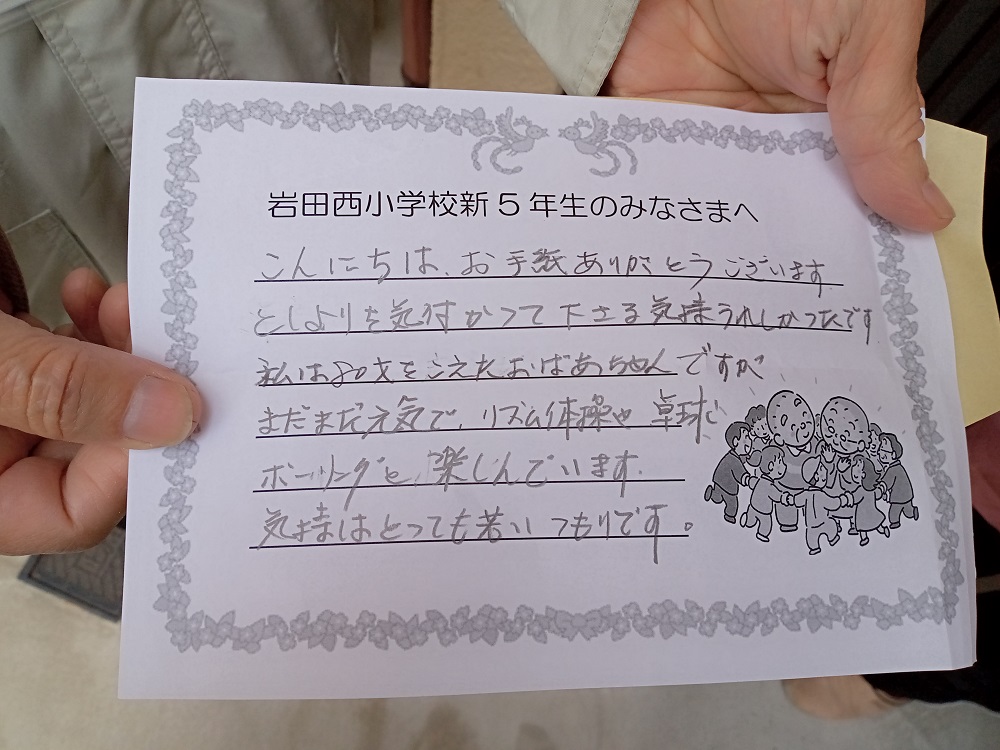 岩田西小学校新5年生のみなさまへ
こんにちは、お手紙ありがとうございます
としよりを気付かって下さる気持うれしかったです
私は80才をこえたおばあちゃんですが
まだまだ元気で、リズム体操や卓球
ボーリングと、楽しんでいます。
気持はとっても若いつもりです。